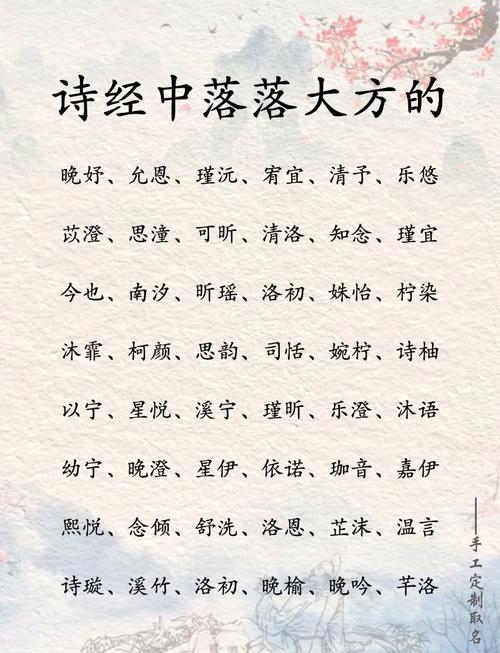 诗经中落落大方的
晚妤、允恩、瑾沅、宥宜、清予、乐悠
苡澄、思潼、可昕、清洛、知念、瑾宜
今也、南汐、昕瑶、洛初、姝怡、柠染
沐霏、柯颜、思韵、司恬、婉柠、诗柚
以宁、星悦、溪宁、瑾昕、乐澄、沐语
幼宁、晚澄、星伊、依诺、珈音、嘉伊
熙悦、念倾、舒洗、洛恩、芷沫、温言
诗璇、溪竹、洛初、晚榆、晚吟、芊洛
——手工定制取名